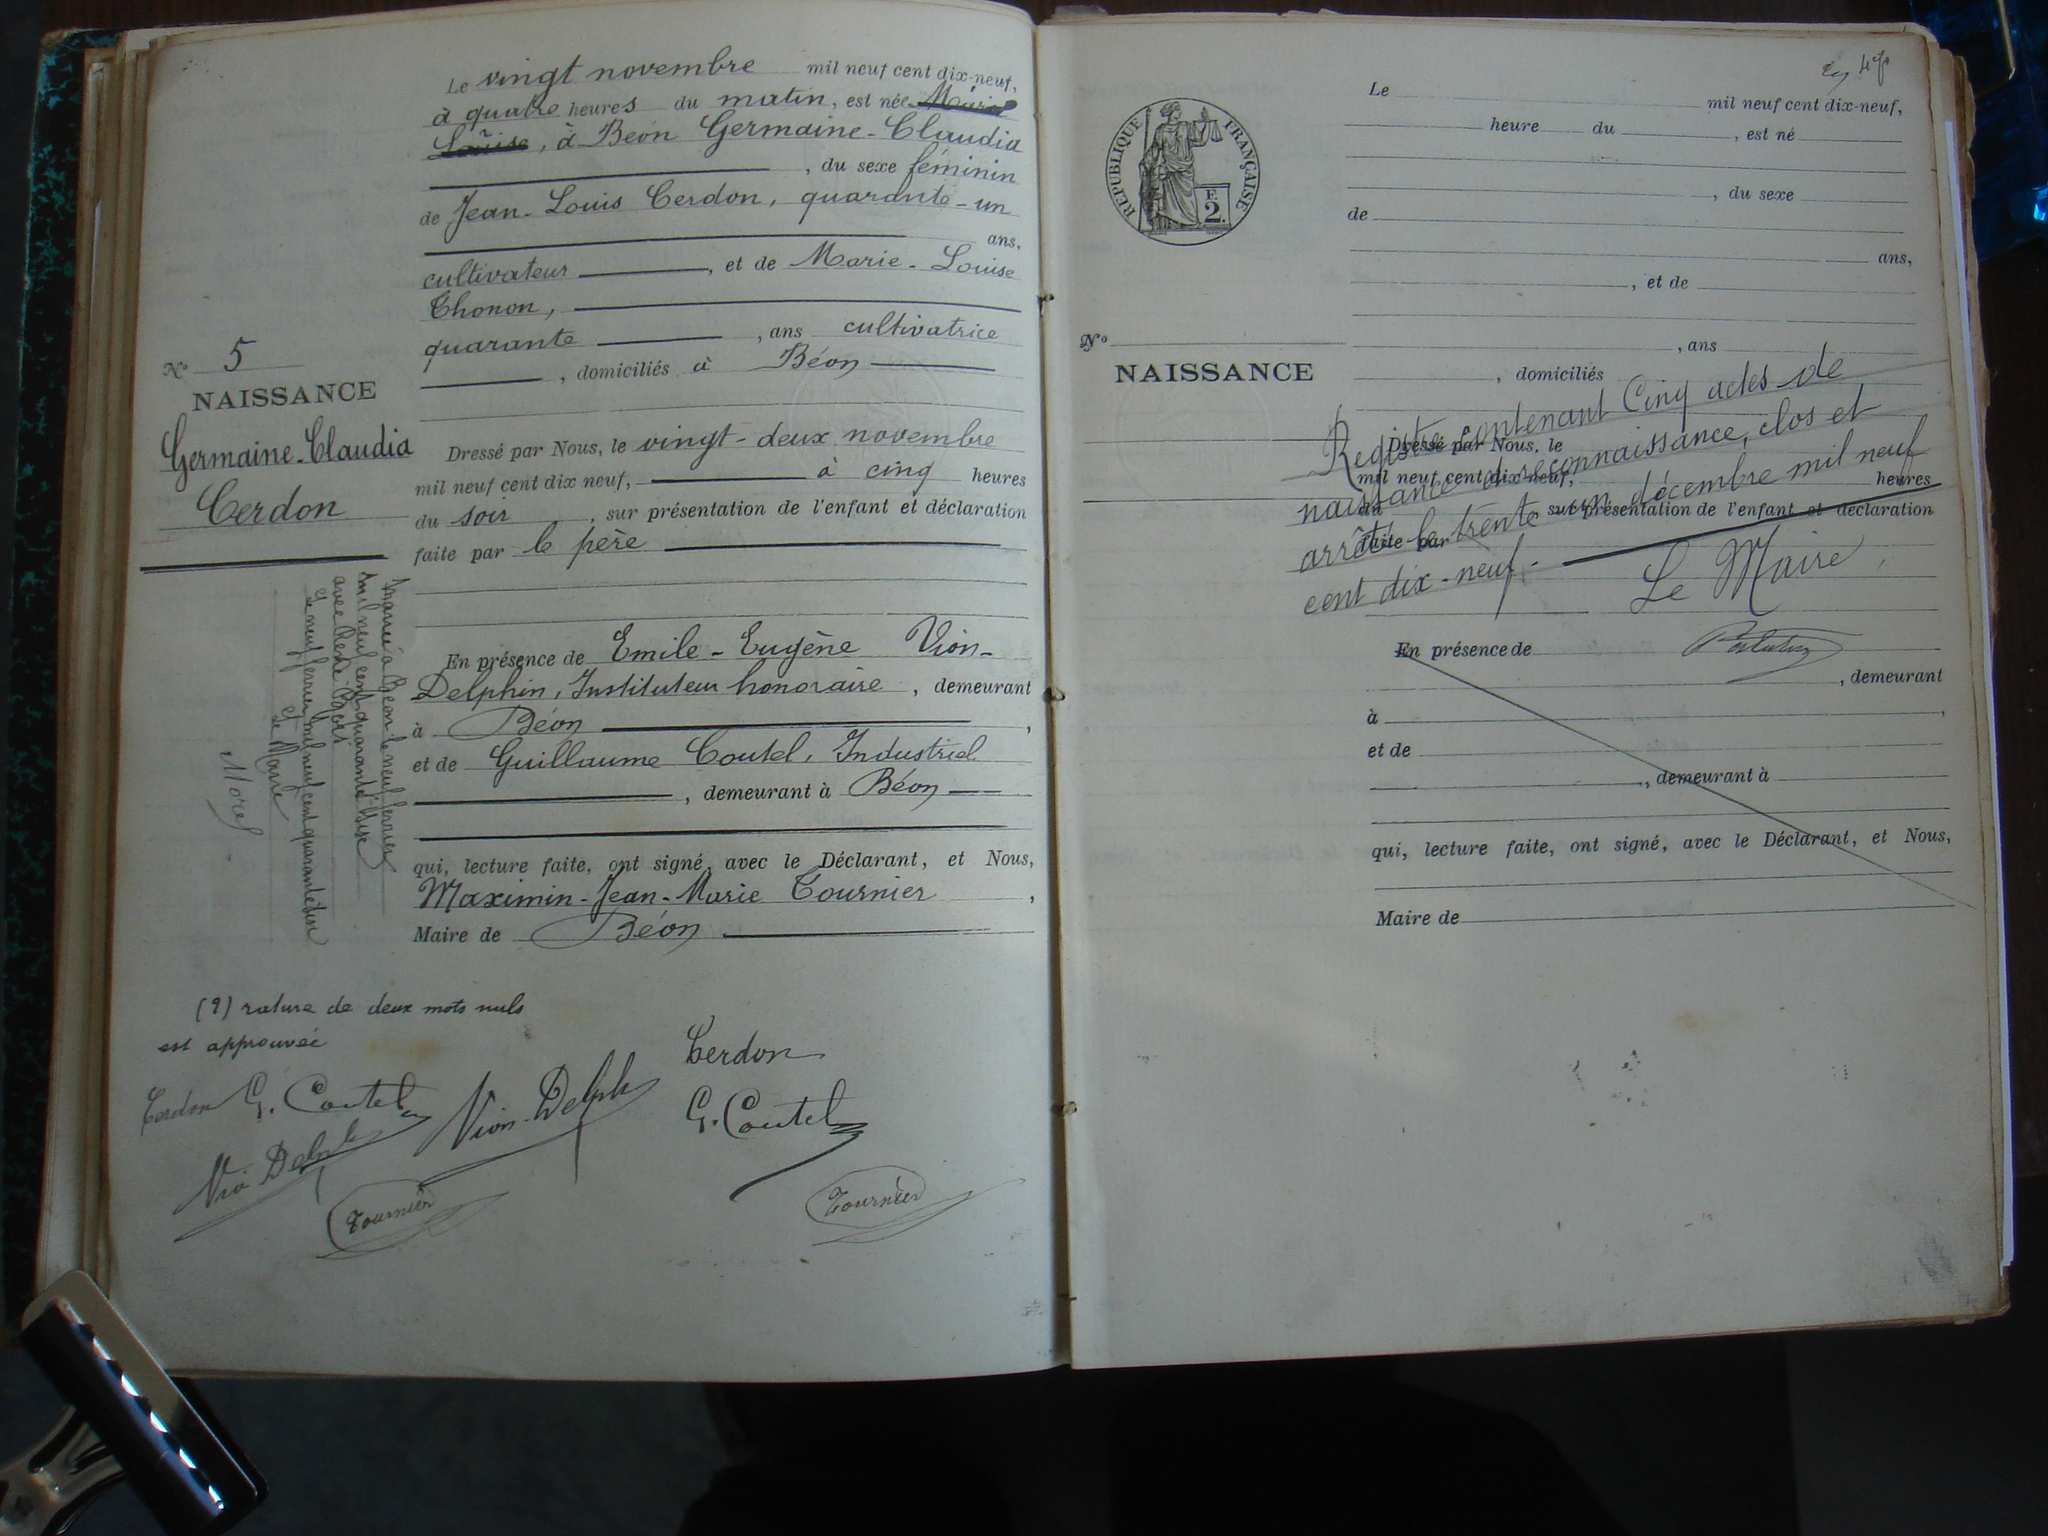 Le vingt novembre mil neuf cent dix-neuf,
à quatre heures du matin, est née Marie
Louise, à Béon Germaine-Claudia
, du sexe féminin
de Jean-Louis Cerdon, quarante-un
ans,
cultivateur, et de Marie-Louise
Thonon,
quarante, ans cultivatrice
, domiciliés à Béon
N° 5
NAISSANCE
Germaine-Claudia
Cerdon
Dressé par Nous, le vingt-deux novembre
mil neuf cent dix neuf, à cinq heures
du soir, sur présentation de l'enfant et déclaration
faite par le père
En présence de Emile-Eugène Vion-
Delphin, Instituteur honoraire, demeurant
à Béon,
et de Guillaume Coutel, Industriel
, demeurant à Béon
qui, lecture faite, ont signé, avec le Déclarant, et Nous,
Maximin-Jean-Marie Tournier,
Maire de Béon
Mariée à Béon le neuf février
mil neuf cent quarante
avec René
Le neuf février mil neuf cent quarante
Le Maire
Morel
(1) rature de deux mots nuls
est approuvée
Cerdon
Cerdon G. Coutel Vion-Delph
G. Coutel
Vion Delph
Tournier Tournier
REPUBLIQUE FRANÇAISE
F.
2.
Le mil neuf cent dix-neuf,
heure du, est né
, du sexe
de
ans,
, et de
N°
NAISSANCE
, ans
, domiciliés
Dressé par Nous, le
mil neuf cent dix-neuf, heures
du sur présentation de l'enfant et déclaration
faite par
Registre contenant Cinq actes de
naissance et reconnaissance, clos et
arrêté le trente-un décembre mil neuf
cent dix-neuf.
Le Maire,
En présence de
, demeurant
à,
et de
, demeurant à
qui, lecture faite, ont signé, avec le Déclarant, et Nous,
Maire de